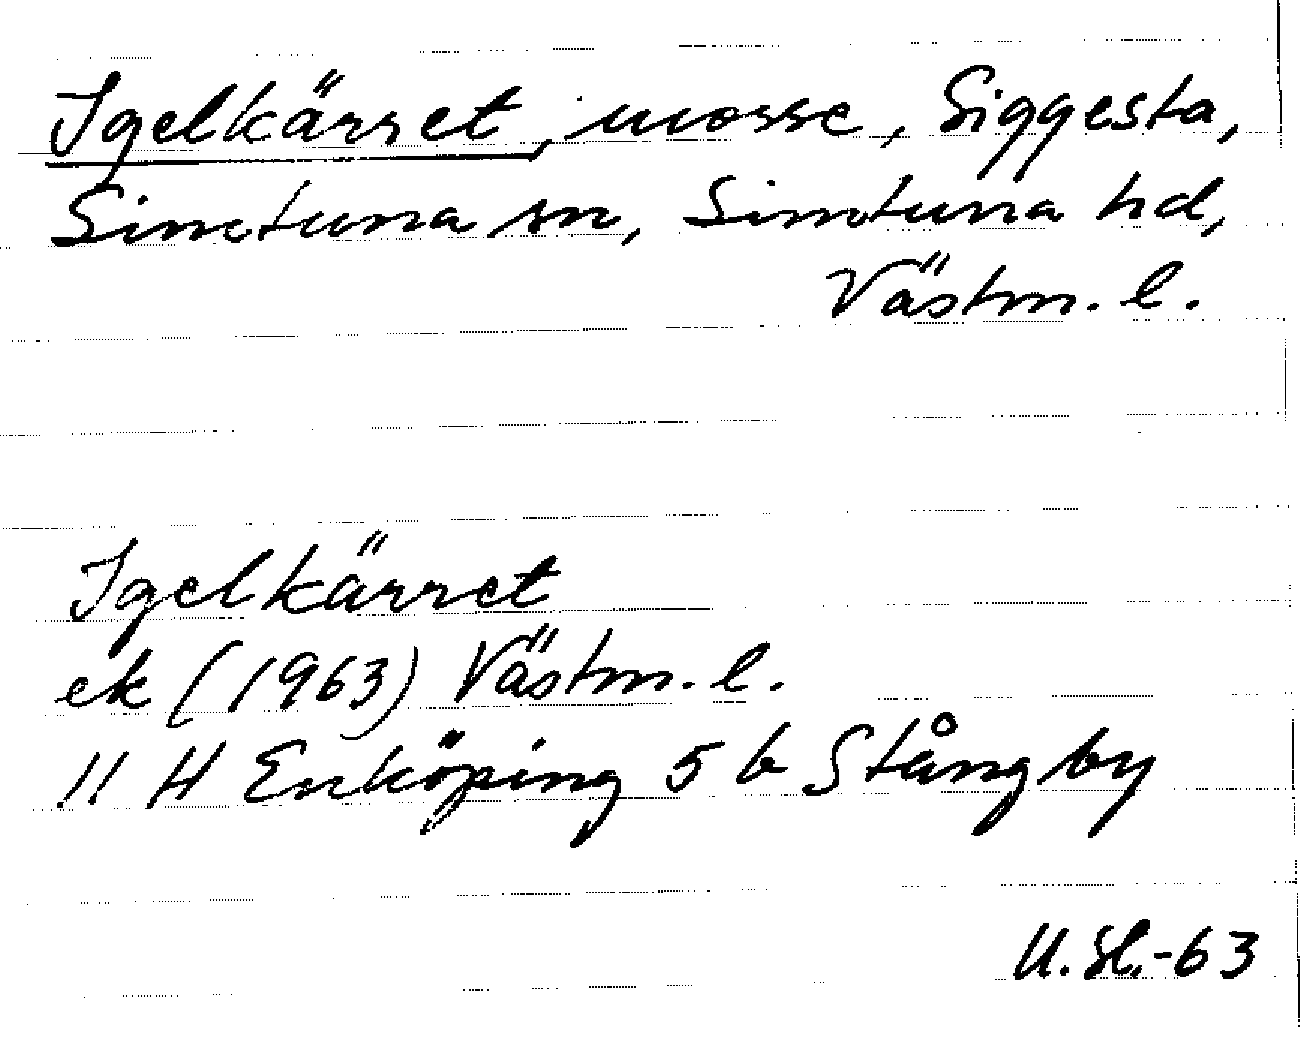 Igelkärret, mosse, Siggesta,
Simtuna sn, Simtuna hd,
Västm. l.
Igelkärret
ek (1963) Västm. l.
11 H Enköping 5 b Stångby
-63